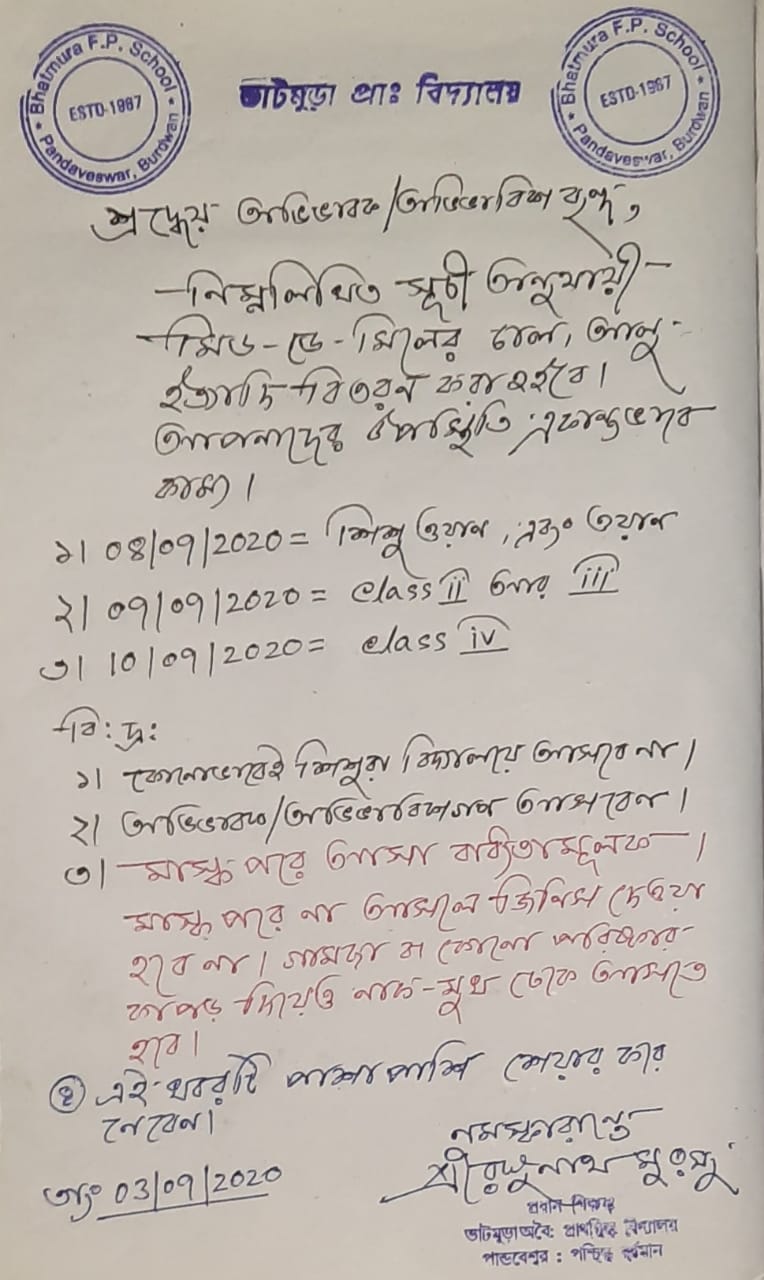 Bhatmura F.P. School
ESTD-1967
Pandaveswar, Burdwan
ভাটমুড়া প্রাঃ বিদ্যালয়
Bhatmura F.P. School
ESTD-1967
Pandaveswar, Burdwan
শ্রদ্ধেয় অভিভাবক/অভিভাবিকা বৃন্দ,
নিম্নলিখিত সূচী অনুযায়ী
মিড-ডে-মিলের চাল, আলু
ইত্যাদি বিতরণ করা হইবে।
আপনাদের উপস্থিতি একান্তভাবে
কাম্য।
১। 08/09/2020 = শিশু ওয়ান, এবং ওয়ান
২। 09/09/2020 = class ii আর iii
৩। 10/09/2020 = class iv
বি: দ্র:
১। কোনোভাবেই শিশুরা বিদ্যালয়ে আসবে না।
২। অভিভাবক/অভিভাবিকাগণ আসবেন।
৩। মাস্ক পরে আসা বাধ্যতামূলক।
মাস্ক পরে না আসলে জিনিস দেওয়া
হবে না। গামছা বা কোনো পরিষ্কার
কাপড় দিয়েও নাক-মুখ ঢেকে আসতে
হবে।
৪ এই খবরটি পাশাপাশি শেয়ার করে
নেবেন।
নমস্কারান্তে
শ্রী রঘুনাথ মুরমু
তাং 03/09/2020
প্রধান শিক্ষক
ভাটমুড়া অবৈঃ প্রাথমিক বিদ্যালয়
পান্ডবেশ্বর : পশ্চিম বর্ধমান